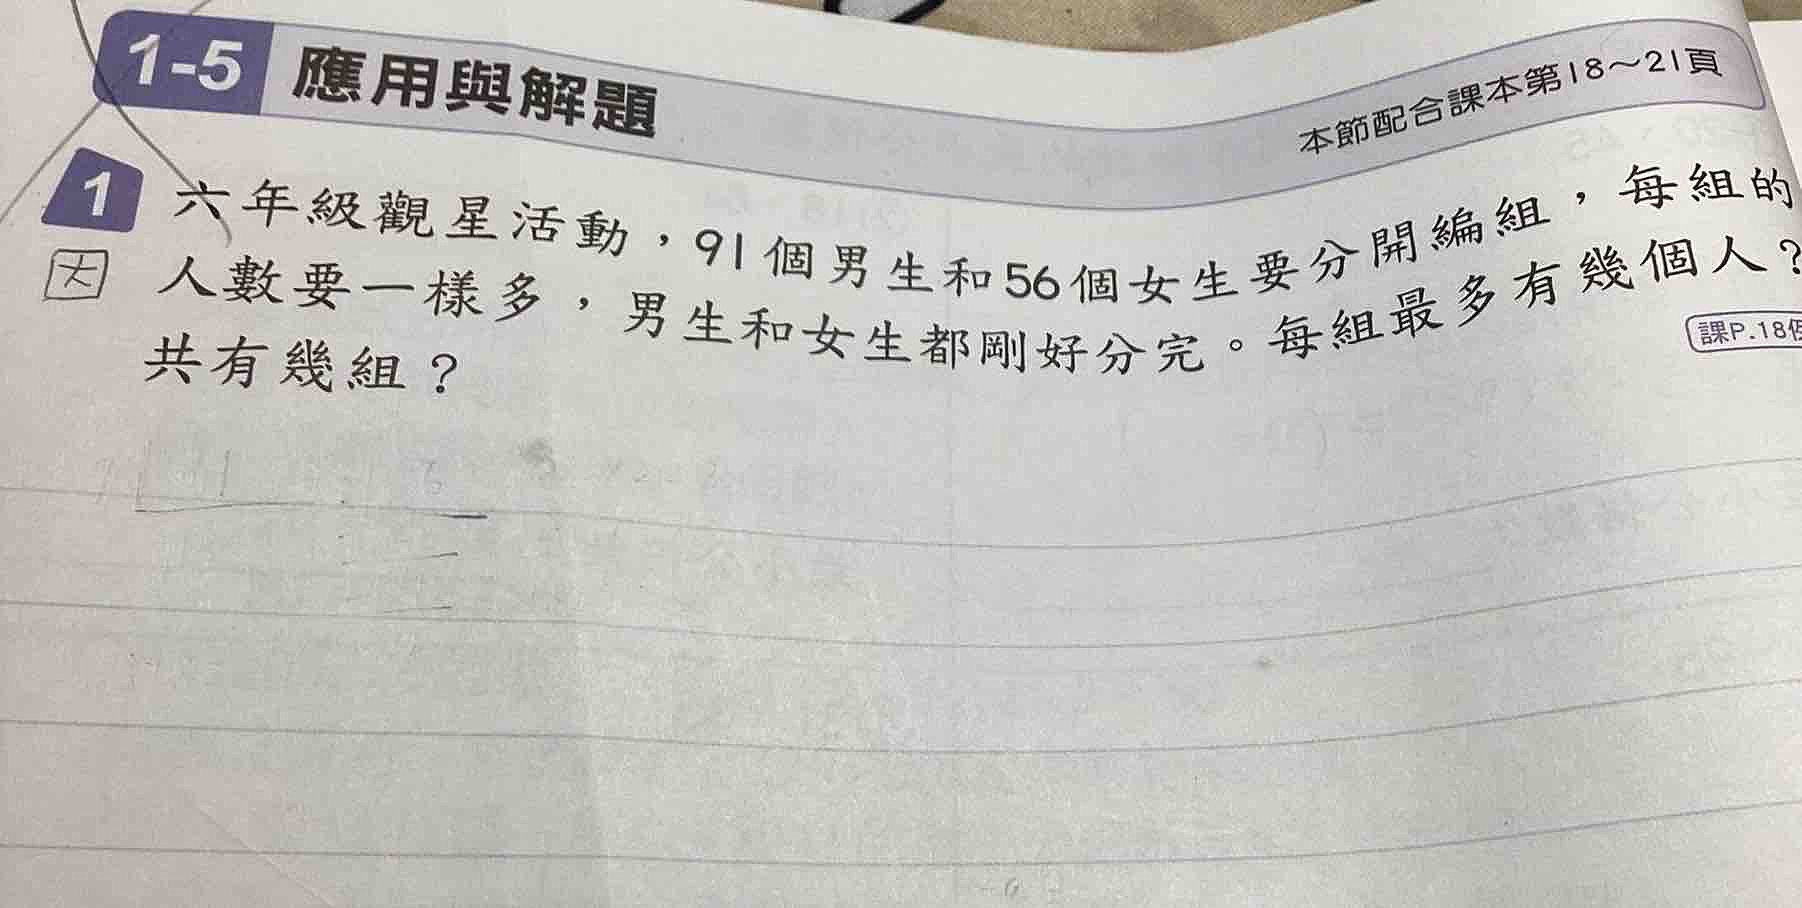 1-5 應用與解題
本節配合課本第18～21頁
1 六年級觀星活動，91個男生和56個女生要分開編組，每組的
因 人數要一樣多，男生和女生都剛好分完。每組最多有幾個人？
共有幾組？
課P.18